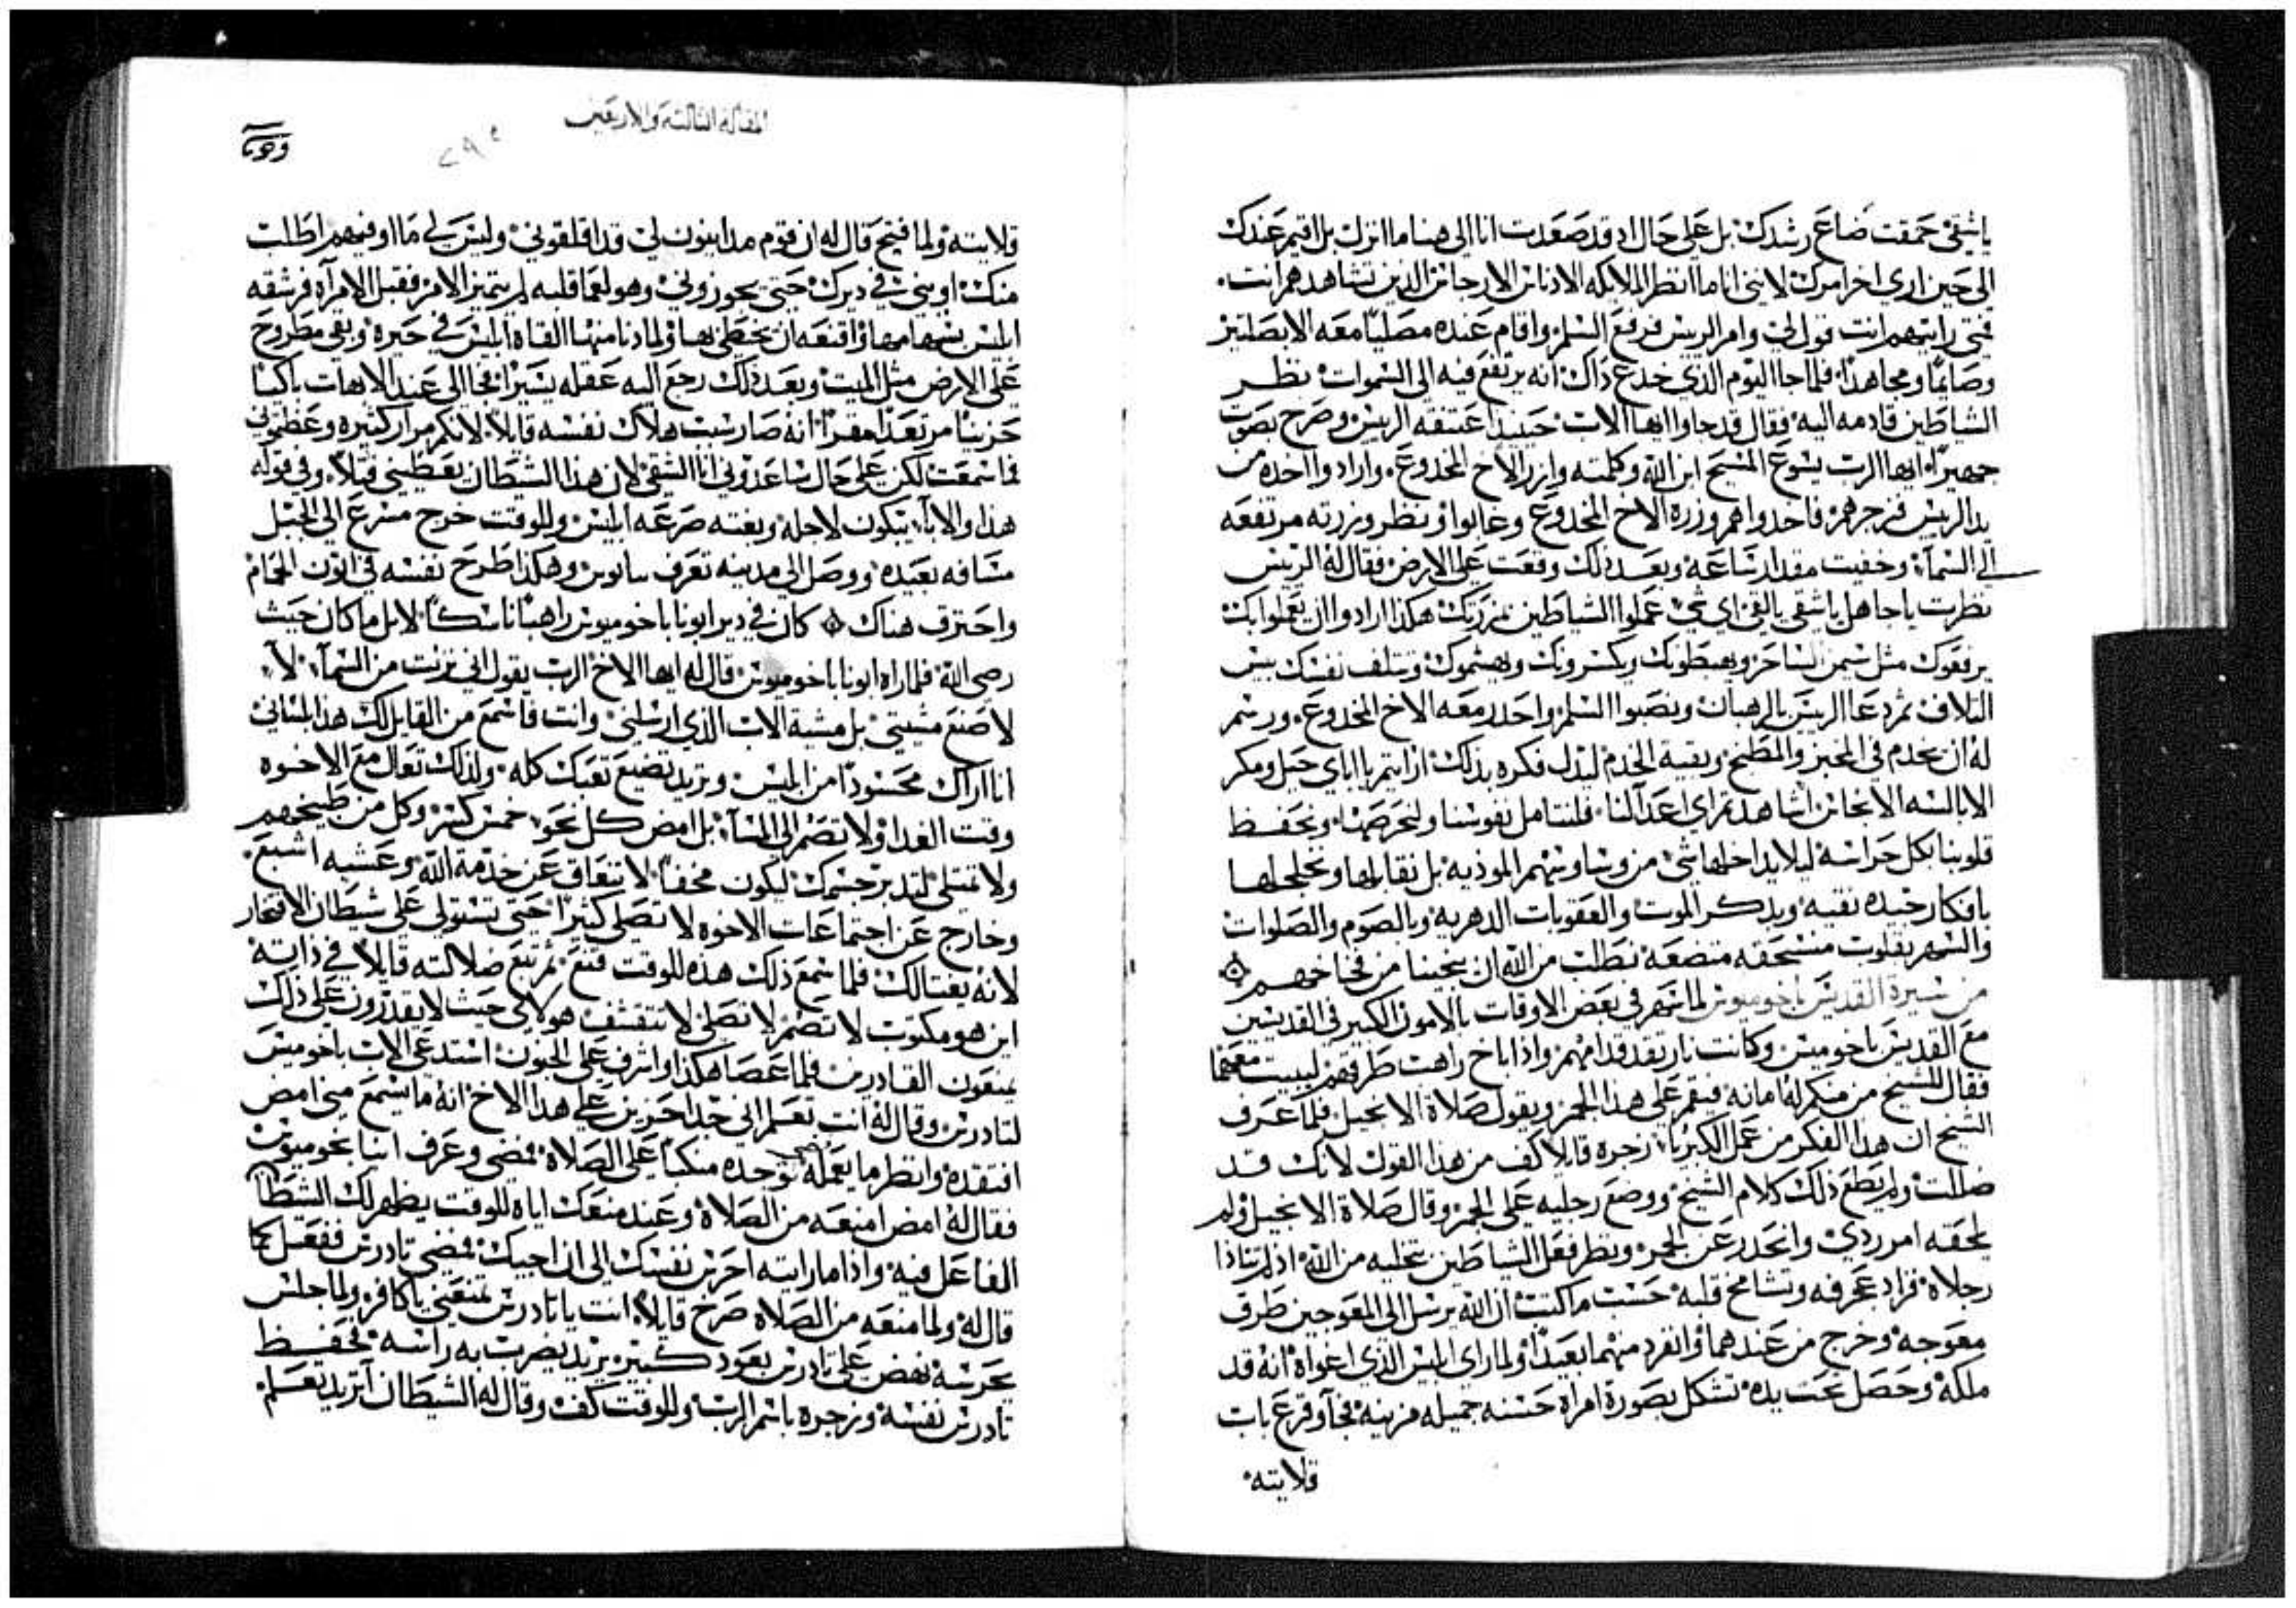 ياشقي حمقت ضاع رشدك بل على حال اد قد صعدت انا الى هنا ما انزل بل اقيم عندك
الى حين ارى اخر امرك لانني انا ما انظر الملايكه الادناس الارجاس الذين تشاهدهم انت.
فمتى رايتهم انت قول لي وامر الريس فرفع السلم واقام عنده مصليا معه الابصلتيز
وصايما ومجاهدا فلما جا اليوم الذي خدع ذاك انه يرتفع فيه الى السموات نظر
الشياطين قادمه اليه فقال قد جاوا ايها الاب حينيد اعتنقه الريس وصرح بصوت
جهيرا ايها الرب يسوع المسيح ابن الله وكلمته وازر الاخ المخدوع وارادوا اخده من
يد الريس فزجرهم فاخدوا هم وزرة الاخ المخدوع وغابوا ونظر وزرته مرتفعه
الى السماء وخفيت مقدار ساعه وبعد ذلك وقعت على الارض فقال له الريس
نظرت ياجاهل ياشقي يالقي اي شي عملوا الشياطين بمزرتك هكذا ارادوا ان يعملوا بك
يرفعوك مثل سيمن الساحر ويهبطونك ويكسرونك ويهشموك ويتلف نفسك بيس
التلاف ثم دعا الريس بالرهبان ونصبوا السلم واحدر معه الاخ المخدوع ورسم
له ان يخدم في المخبز والمطبخ وبقية الخدم ليدل فكره بذلك ارايتم يا اباي حيل ومكر
الابالسه الانجاس اشاهدتم راي اعدآلنا فلنتامل نفوسنا ولنحرصها ونحفظ
قلوبنا بكل حراسه ليلا يداخلها شي من وساوسهم الموذيه بل نقابلها ونخلجلها
بافكار جيده نقيه وبدكر الموت والعقوبات الدهريه وبالصوم والصلوات
والسهر بقلوب منسحقه متضعه نطلب من الله ان ينجينا من فخاخهم
من سيرة القديس باخوميوس لما اشهر في بعض الاوقات بالامون الكبير في القديسين
مع القديس باخوميس وكانت نار تقد قدامهم واذا باخ راهب طرقهم لبيت معهما
فقال للشيخ من منكم له امانه فيقم على هذا الجمر ويقول صلاة الانجيل فلما عرف
الشيخ ان هدا الفكر من عمل الكبريا زجره قايلا كف من هذا القول لانك قد
ضللت ولم يطع ذلك كلام الشيخ ووضع رجليه على الجمر وقال صلاة الانجيل ولم
يلحقه امر ردي وانحدر عن الجمر ونظر فعل الشياطين بتخليه من الله اذ لم تتاذا
رجلاه فزاد عجرفه وتشامخ قلبه حسب ماكتب ان الله يرسل الى المعوجين طرق
معوجه وخرج من عندهما وانفرد منهما بعيدا ولما راى ابليس الذي اغواه انه قد
ملكه وحصل تحت يده تشكل بصورة امراة حسنه جميله مزينه فجا وقرع باب
قلايته
المقالة الثالثة والاربعين
قلايته ولما فتح قال له ان قوم مداينون لي قد اقلقوني وليس لي ما اوفيهم اطلب
منك اويني في ديرك حتى يجوزوني وهو لعما قلبه لم يتميز الامر فقبل الامراه فرشقه
ابليس بسهامها واقنعه ان يخطي بها ولما دنا منها القاه ابليس في حيره وبقي مطروح
على الارض مثل الميت وبعد ذلك رجع اليه عقله يسيرا فجا الى عند الابهات باكيا
حزينا مرتعدا مقرا انه صار سبب هلاك نفسه قايلا لانكم مرار كثيره وعظتوني
فما سمعت لكن على حال ساعدوني انا الشقي لان هذا الشيطان يعطيني قتلا وفي قوله
هذا والابا يبكون لاجله وبغته صرعه ابليس وللوقت خرج مسرع الى الجبل
مسافه بعيده ووصل الى مدينه تعرف بنانوس وهكذا طرح نفسه في اتون الحمام
واحترق هناك كان في دير ابونا باخوميوس راهبا ناسكا لابل ما كان حيث
رضى الله فلما راه ابونا باخوميوس قال له ايها الاخ الرب يقول اني نزلت من السمآ لا
لاصنع مشيتي بل مشية الاب الذي ارسلني وانت فاسمع من القايل لك هذا بلساني
انا اراك محسودا من ابليس ويريد تضيع تعبك كله ولذلك تعال مع الاخوه
وقت الغدا ولا تصم الى المسآ بل امض كل نحو خمس كسر وكل من طبيخهم
ولا تمتلي لتدبر جسمك ليكون مخفا لا تتعاق عن خدمة الله وعشيه اشبع.
وخارج عن اجتماعات الاخوه لا تصلي كثيرا حتى تستولي على شيطان الافتخار
لانه يغتالك فلما سمع ذلك هذه للوقت قنع ثم تبع ضلالته قايلا في ذاته
اين هو مكتوب لا تصم لا تصلي لا تتقشف هولاي حيث لا يقدرون على ذلك
يمنعون القادرين فلما عصا هكذا واشرف على الجنون استدعى الاب باخوميس
لتادرس وقال له انت تعلم اني جدا حزين على هدا الاخ انه ما يسمع مني امض
افتقده وانظر ما يعمله فوجده منكبا على الصلاة فمضى وعرف ابنا بخوميوس
فقال له امض امنعه من الصلاة وعند منعك اياه للوقت يظهر لك الشيطان
الفاعل فيه واذا ما رايته احرس نفسك الى ان اجيك فمضى تادرس ففعل كما
قال له ولما منعه من الصلاه صرح قايلا انت يا تادرس تمنعني ياكافر ولما جلس
يحرسه نهض على تادرس بعود كبير يريد يضرب به راسه فحفظ
تادرس نفسه وزجره باسم الرب وللوقت كف وقال له الشيطان آتريد تعلم